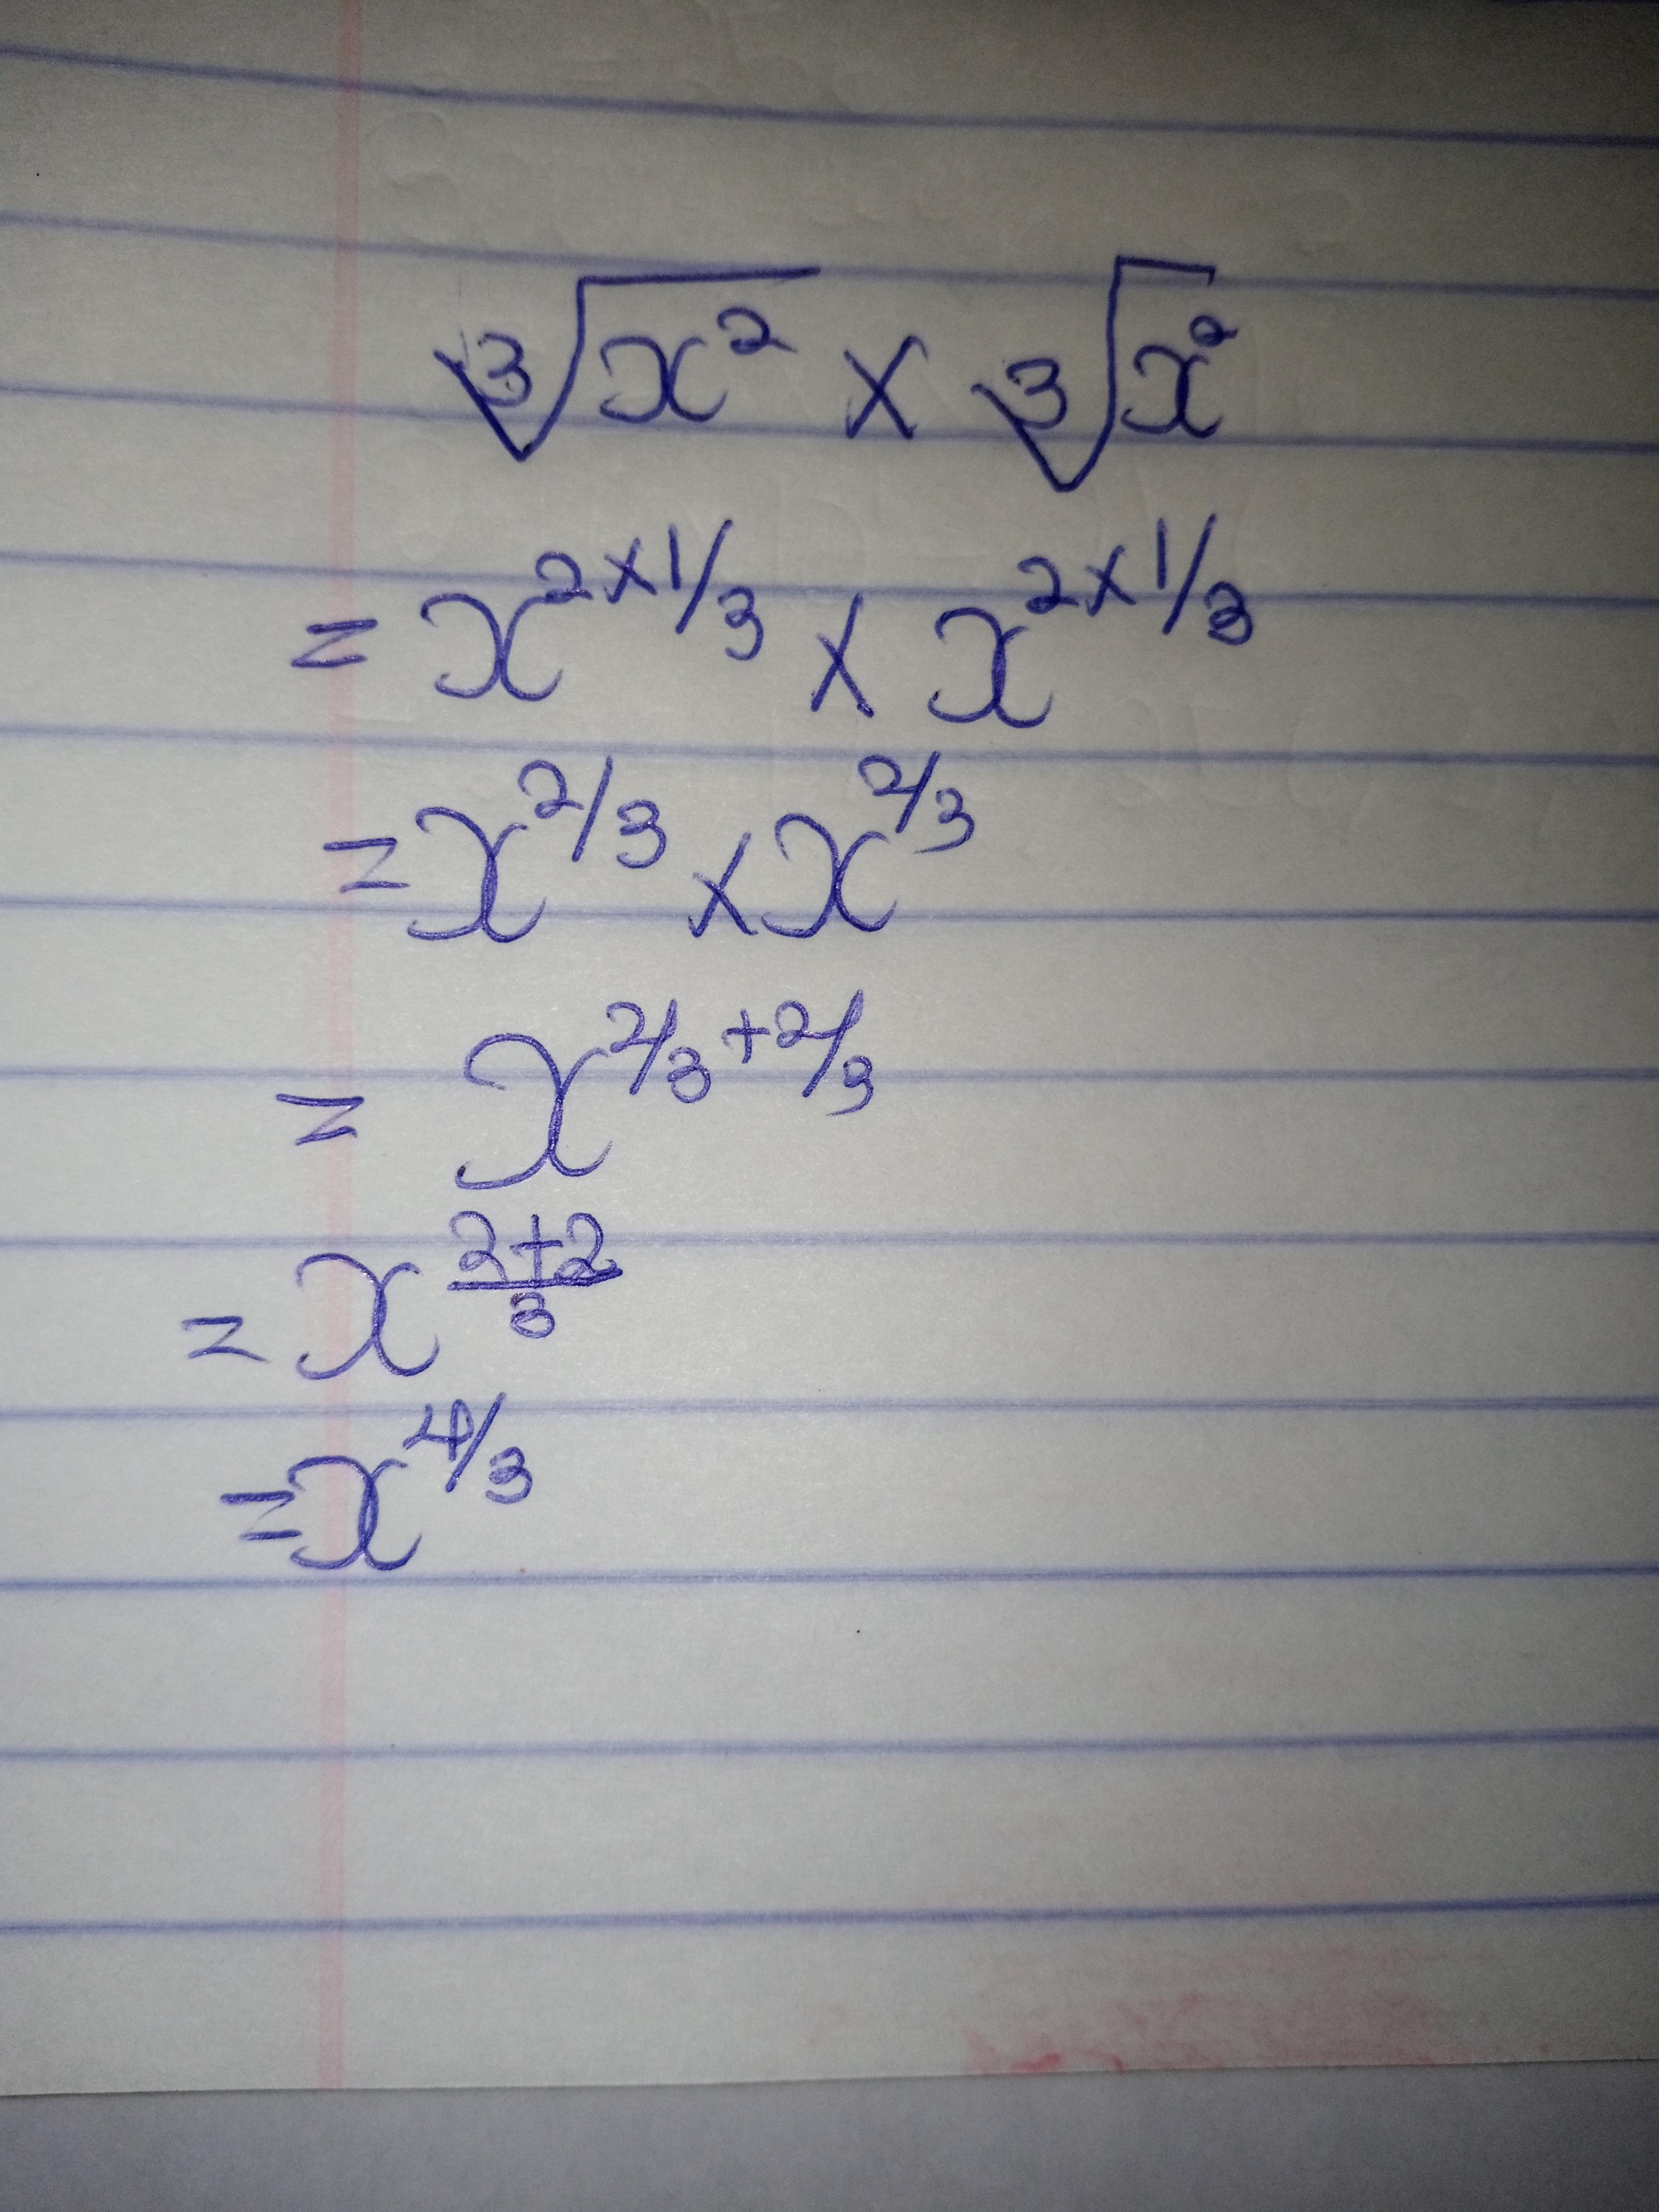 ∛x² × ∛x²
= x^(2×1/3) × x^(2×1/3)
= x^(2/3) × x^(2/3)
= x^(2/3+2/3)
= x^((2+2)/3)
= x^(4/3)